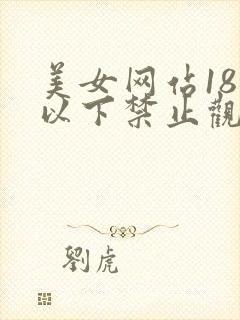 美女网佔18
以下禁止觀
劉虎